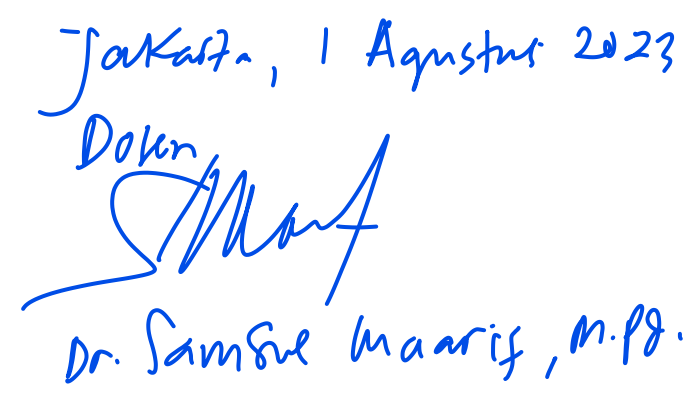 Jakarta, 1 Agustus 2023
Dosen
Dr. Samsul Maarif, M.Pd.